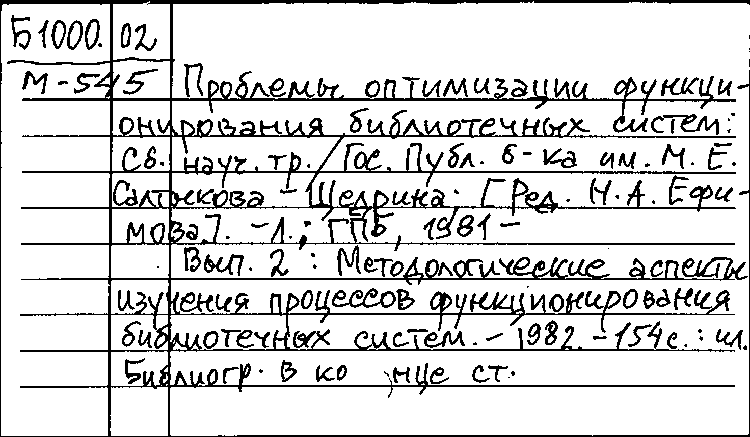 Б1000. 02
М-545 Проблемы оптимизации функци-
онирования библиотечных систем:
Сб. науч. тр. / Гос. Публ. б-ка им. М. Е.
Салтыкова - Щедрина; [Ред. Н. А. Ефи-
мова]. - Л.; ГПБ, 1981 -
Вып. 2 : Методологические аспекты
изучения процессов функционирования
библиотечных систем. - 1982. - 154 с. : ил.
Библиогр. в ко нце ст.